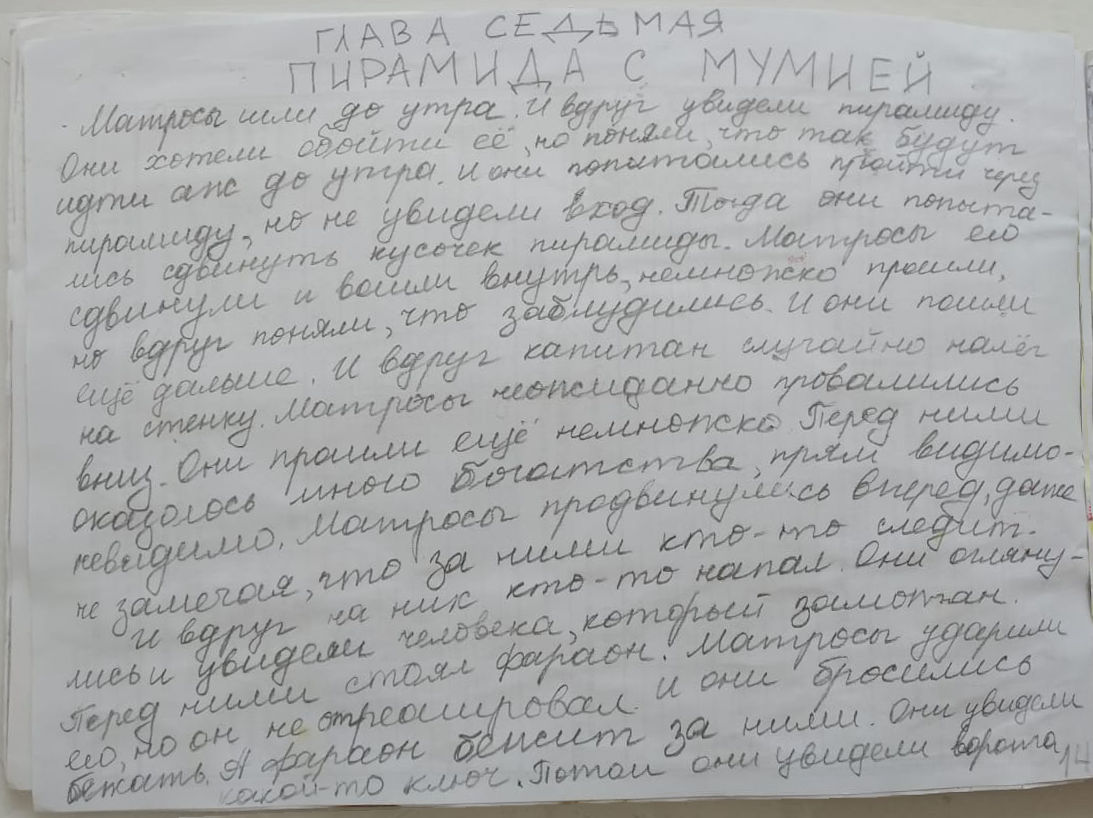 ГЛАВА СЕДЬМАЯ
ПИРАМИДА С МУМИЕЙ
Матросы шли до утра. И вдруг увидели пирамиду.
Они хотели обойти её, но поняли, что так будут
идти аж до утра. И они попытались пройти через
пирамиду, но не увидели вход. Тогда они попыта-
лись сдвинуть кусочек пирамиды. Матросы его
сдвинули и вошли внутрь, немножко прошли,
но вдруг поняли, что заблудились. И они пошли
ещё дальше. И вдруг капитан случайно налёг
на стенку. Матросы неожиданно провалились
вниз. Они прошли ещё немножко. Перед ними
оказолось много богатства, прям видимо-
невидимо. Матросы продвинулись вперед, даже
не замечая, что за ними кто-то следит.
И вдруг на них кто-то напал. Они огляну-
лись и увидели человека, который замотан.
Перед ними стоял фараон. Матросы ударили
его, но он не отреагировал. И они бросились
бежать. А фараон бежит за ними. Они увидели
какой-то ключ. Потом они увидели ворота
14